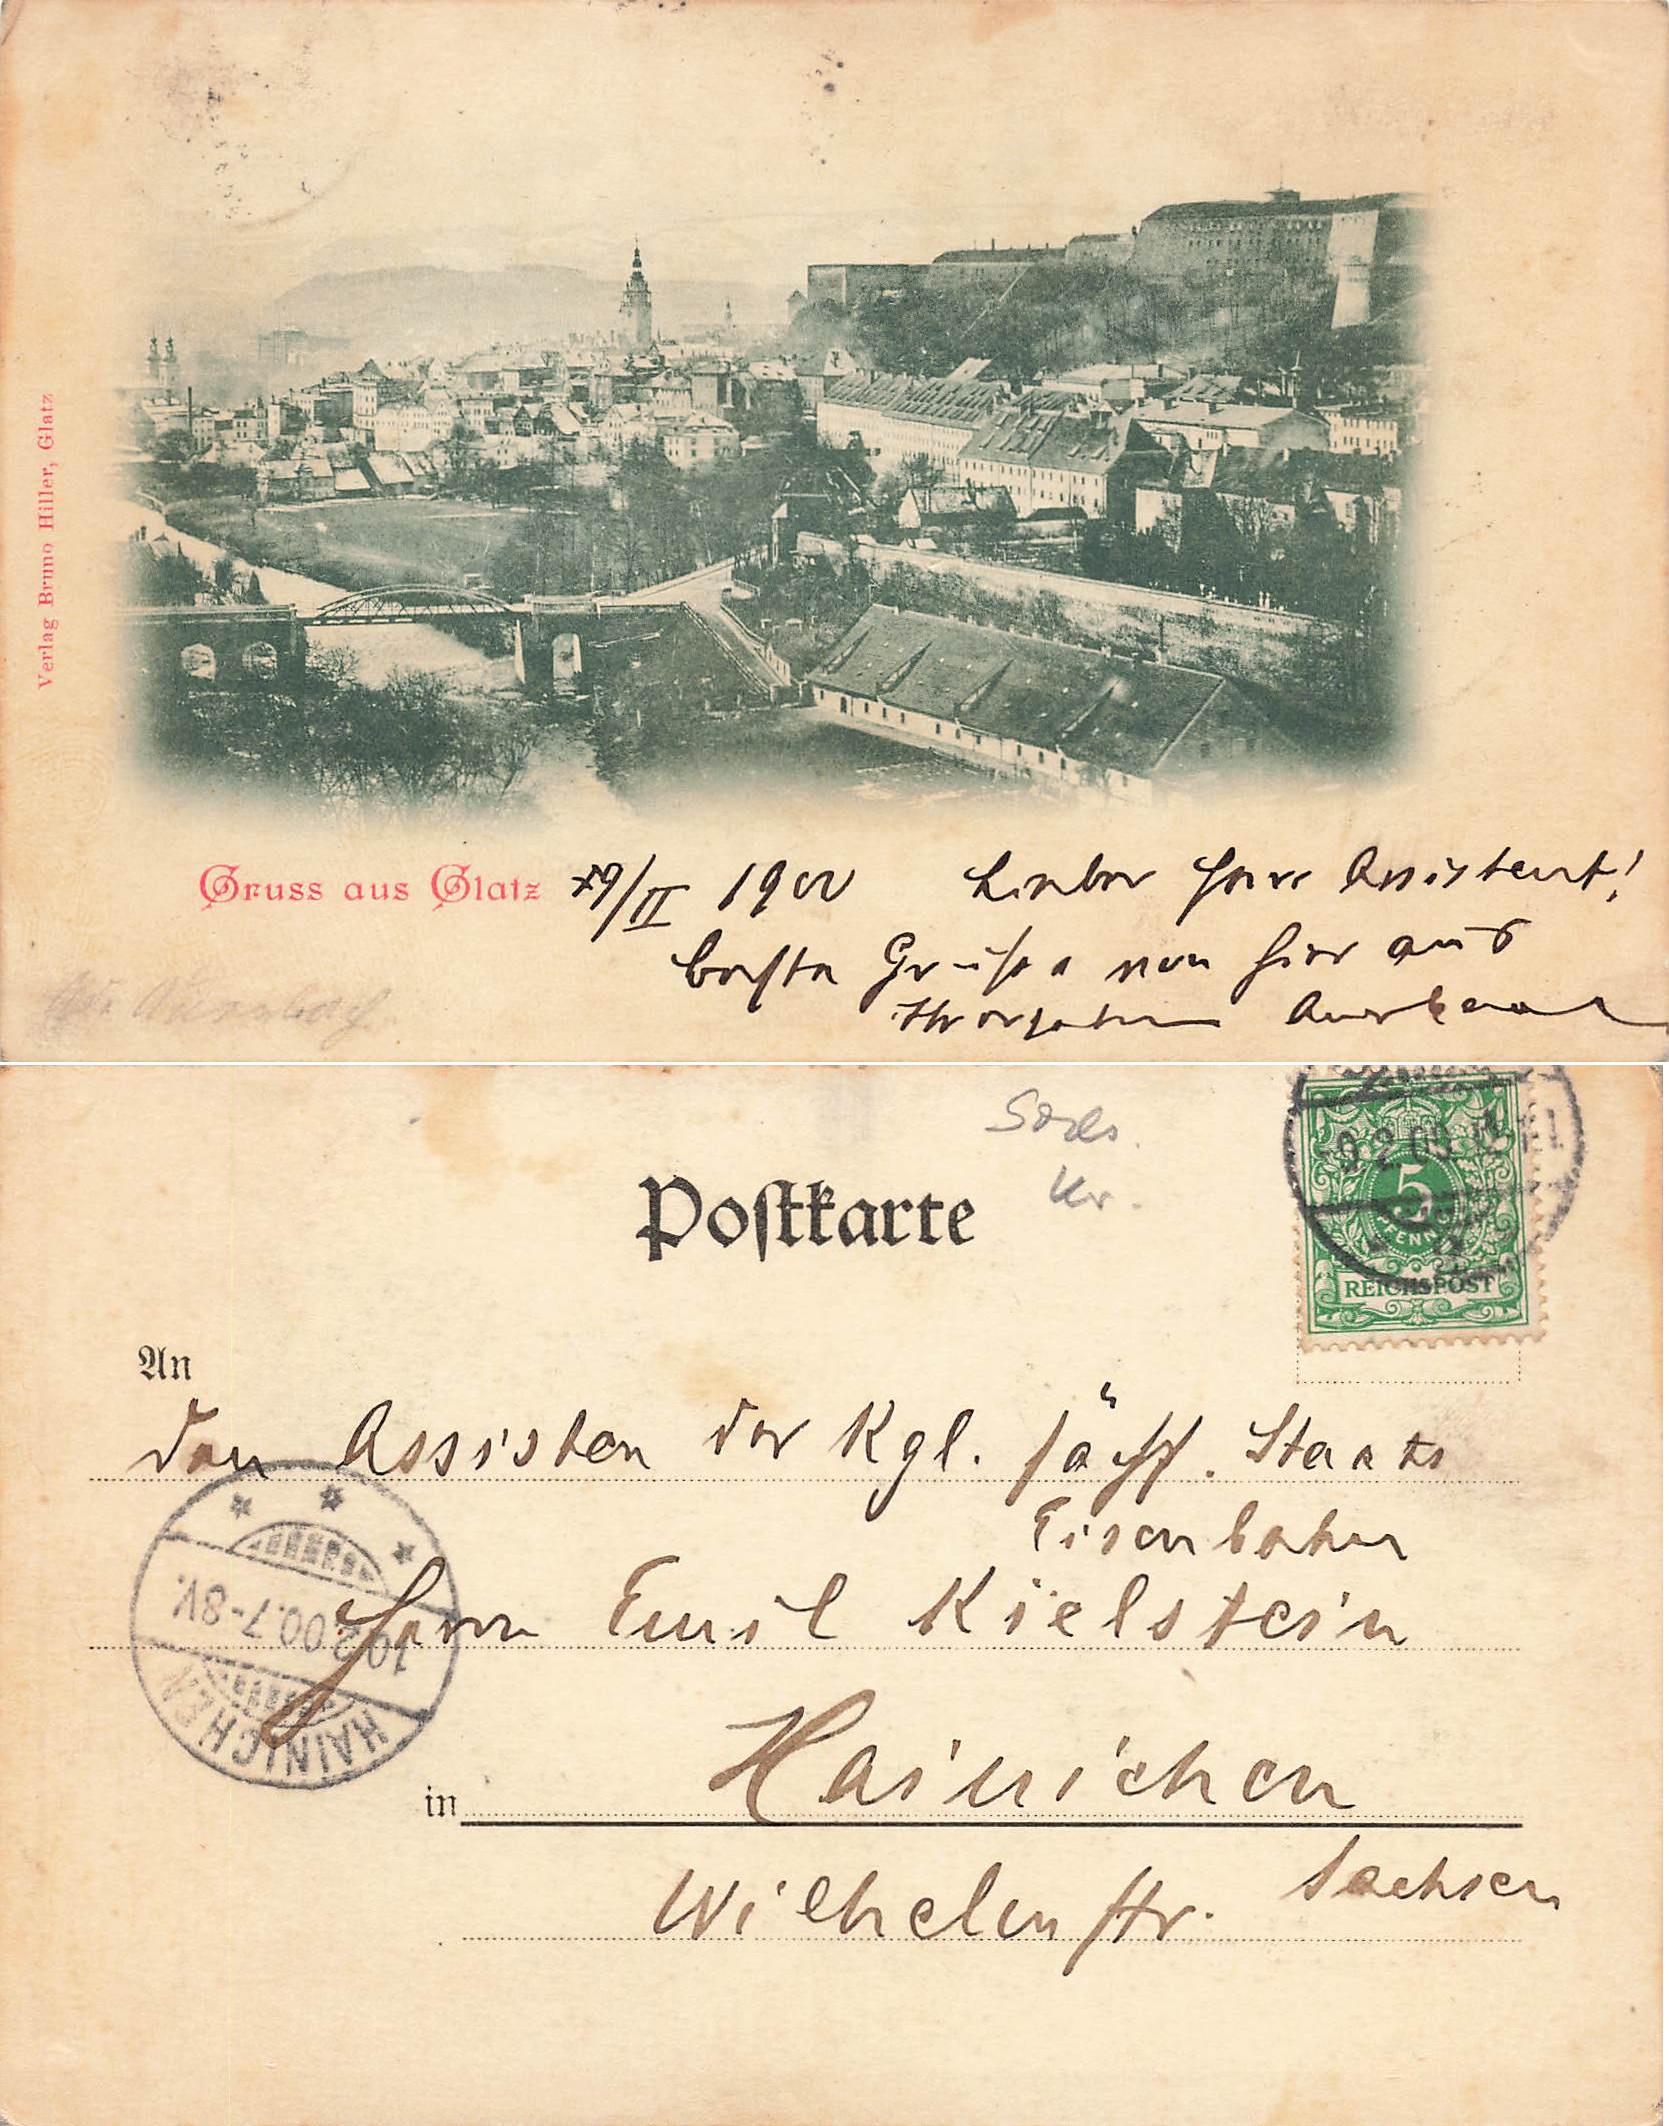 Verlag Bruno Hiller, Glatz
Gruss aus Glatz 9/II 1900 Lieber Herr Assistent!
beste Grüße von hier aus
Postkarte
9.2.00
5
PFENNIG
REICHSPOST
An
den Assisten der Kgl. sächs. Staats
Eisenbahn
Herrn Emil Kielstein
10.2.00.7-8V.
HAINICHEN
in Hainichen
Sachsen
Wilhelmstr.